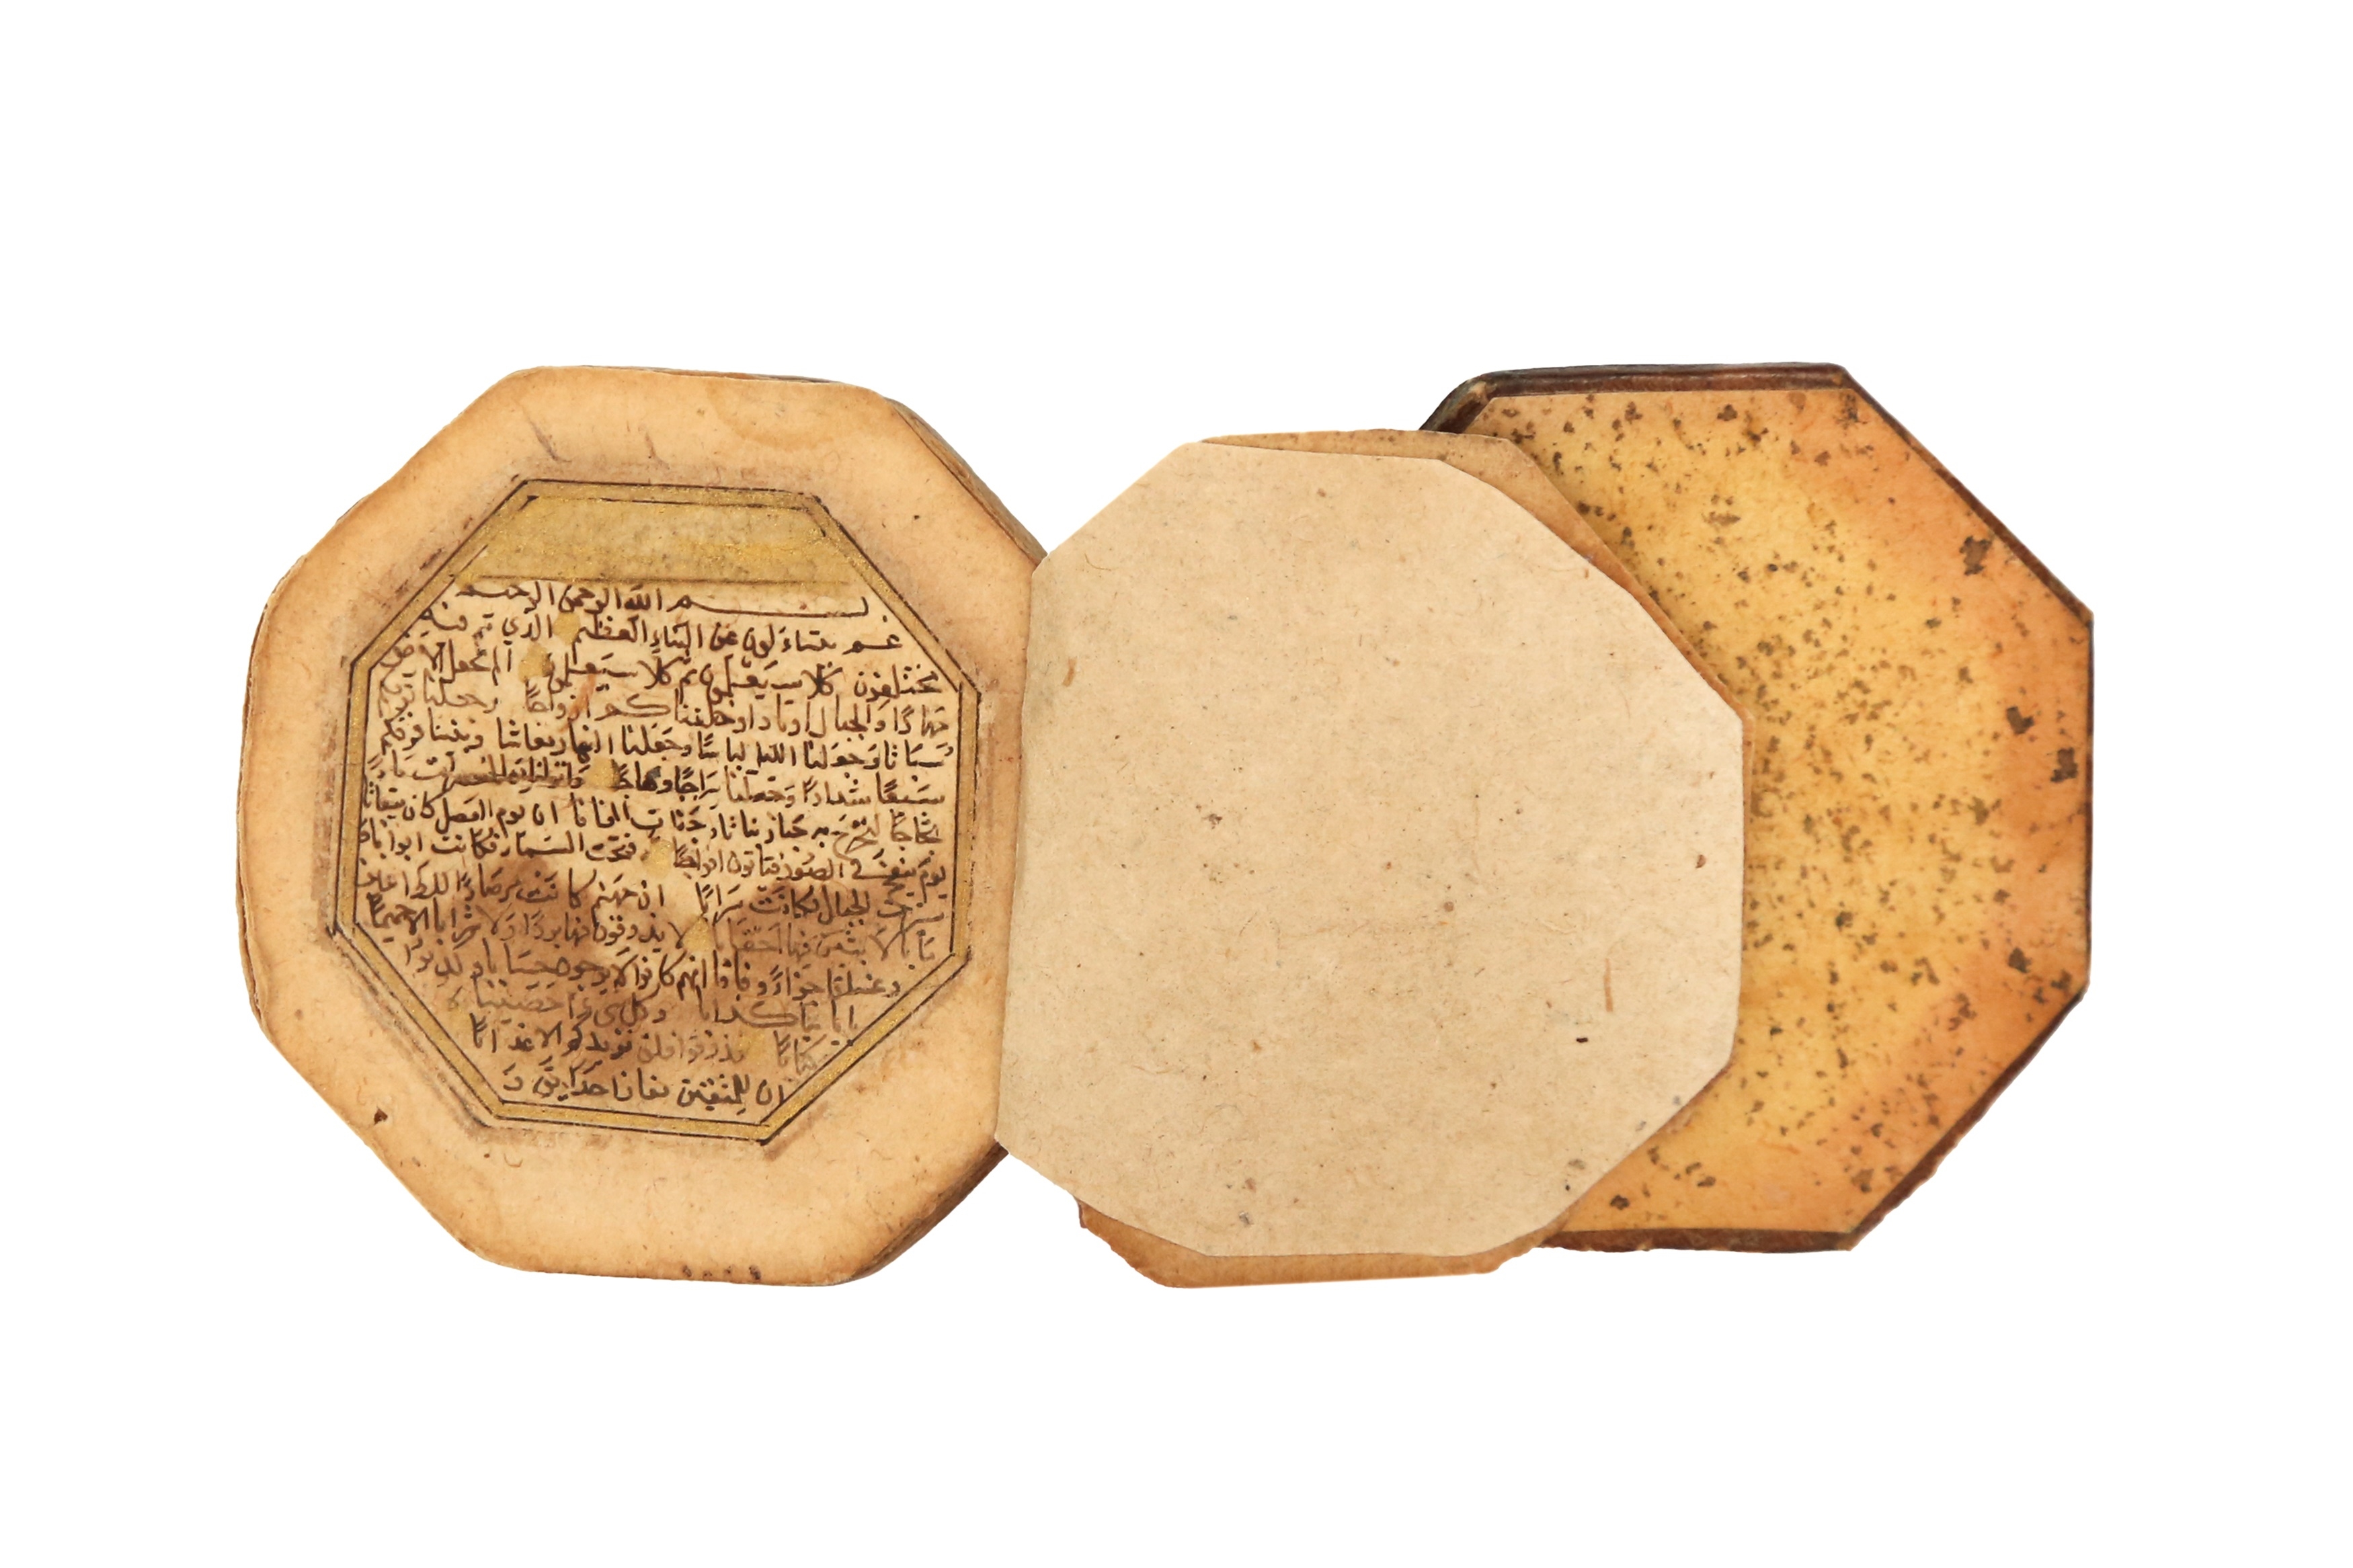 بسم الله الرحمن الرحيم
عم يتساءلون عن النباء العظيم الذي هم فيه
مختلفون كلا سيعلمون ثم كلا سيعلمون الم نجعل الارض
مهادًا والجبال اوتادا وخلقناكم ازواجًا وجعلنا نومكم
سباتا وجعلنا الليل لباسًا وجعلنا النهار معاشا وبنينا فوقكم
سبعًا شدادًا وجعلنا سراجًا وهاجًا وانزلنا من المعصرات ماءً
ثجاجًا لنخرج به حبا ونباتا وجنات الفافا ان يوم الفصل كان ميقاتا
يوم ينفخ في الصور فتاتون افواجًا وفتحت السماء فكانت ابوابا و
سيرت الجبال فكانت سرابًا ان جهنم كانت مرصادًا للطاغين
مابا لابثين فيها احقابا لا يذوقون فيها بردًا ولا شرابا الا حميمًا
وغساقا جزاءً وفاقا انهم كانوا لا يرجون حسابا وكذبوا
باياتنا كذابا وكل شيء احصيناه
كتابًا فذوقوا فلن نزيدكم الا عذابًا
ان للمتقين مفازا حدايق و